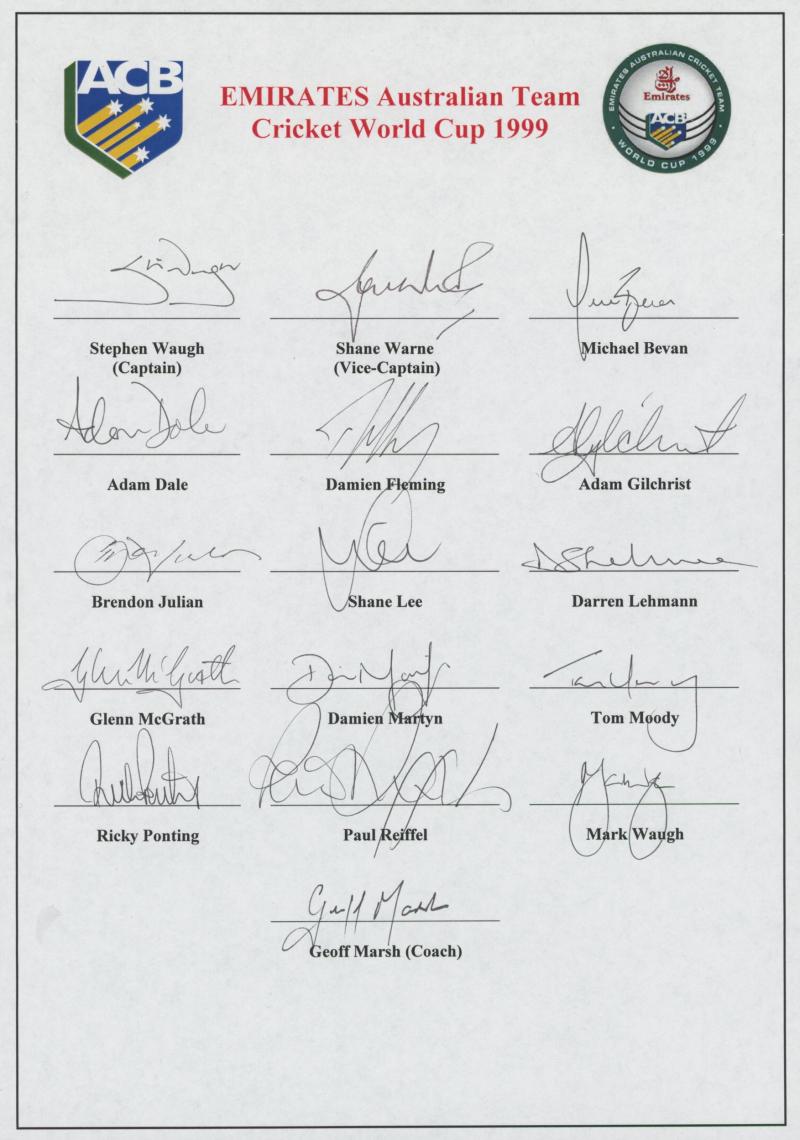 ACB
EMIRATES Australian Team
Cricket World Cup 1999
EMIRATES AUSTRALIAN CRICKET TEAM
Emirates
ACB
WORLD CUP 1999
Stephen Waugh
(Captain)
Shane Warne
(Vice-Captain)
Michael Bevan
Adam Dale
Adam Dale
Damien Fleming
Adam Gilchrist
Brendon Julian
Shane Lee
Darren Lehmann
Glenn McGrath
Glenn McGrath
Damien Martyn
Tom Moody
Ricky Ponting
Paul Reiffel
Mark Waugh
Geoff Marsh
Geoff Marsh (Coach)